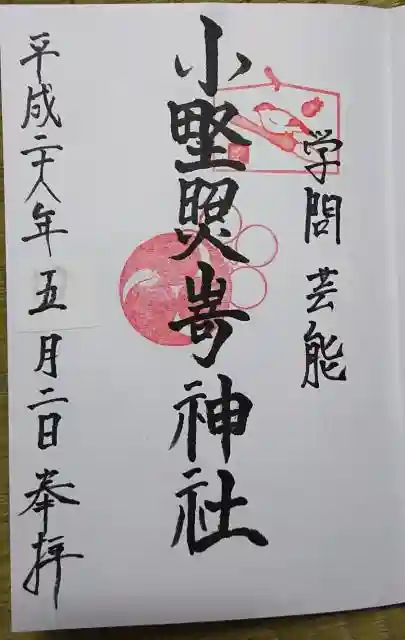 学問 芸能
小野照嵜神社
平成二十八年五月二日奉拝